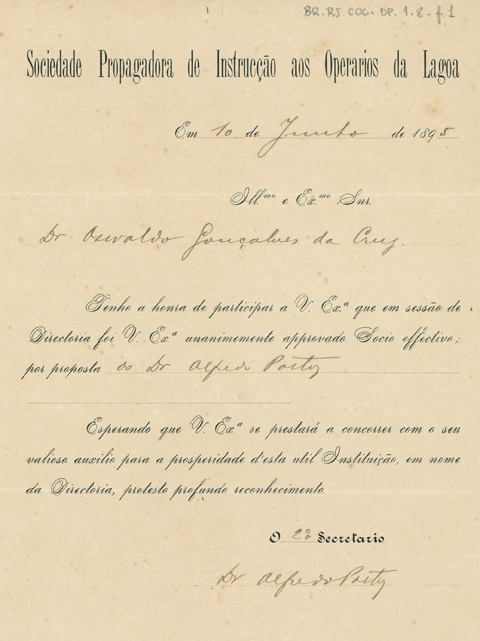 BR.RJ COC. DP. 1. 8. f 1
Sociedade Propagadora de Instrucção aos Operarios da Lagoa
Em 10 de Junho de 1895
Ill.mo e Ex.mo Snr.
Dr Oswaldo Gonçalves da Cruz.
Tenho a honra de participar a V. Ex.a que em sessão de
Directoria foi V. Ex.a unanimemente approvado Socio effectivo;
por proposta do Dr Alfredo Porto
Esperando que V. Ex.a se prestará a concorrer com o seu
valioso auxilio para a prosperidade d'esta util Instituição, em nome
da Directoria, protesto profundo reconhecimento
O 2º Secretario
Dr Alfredo Porto